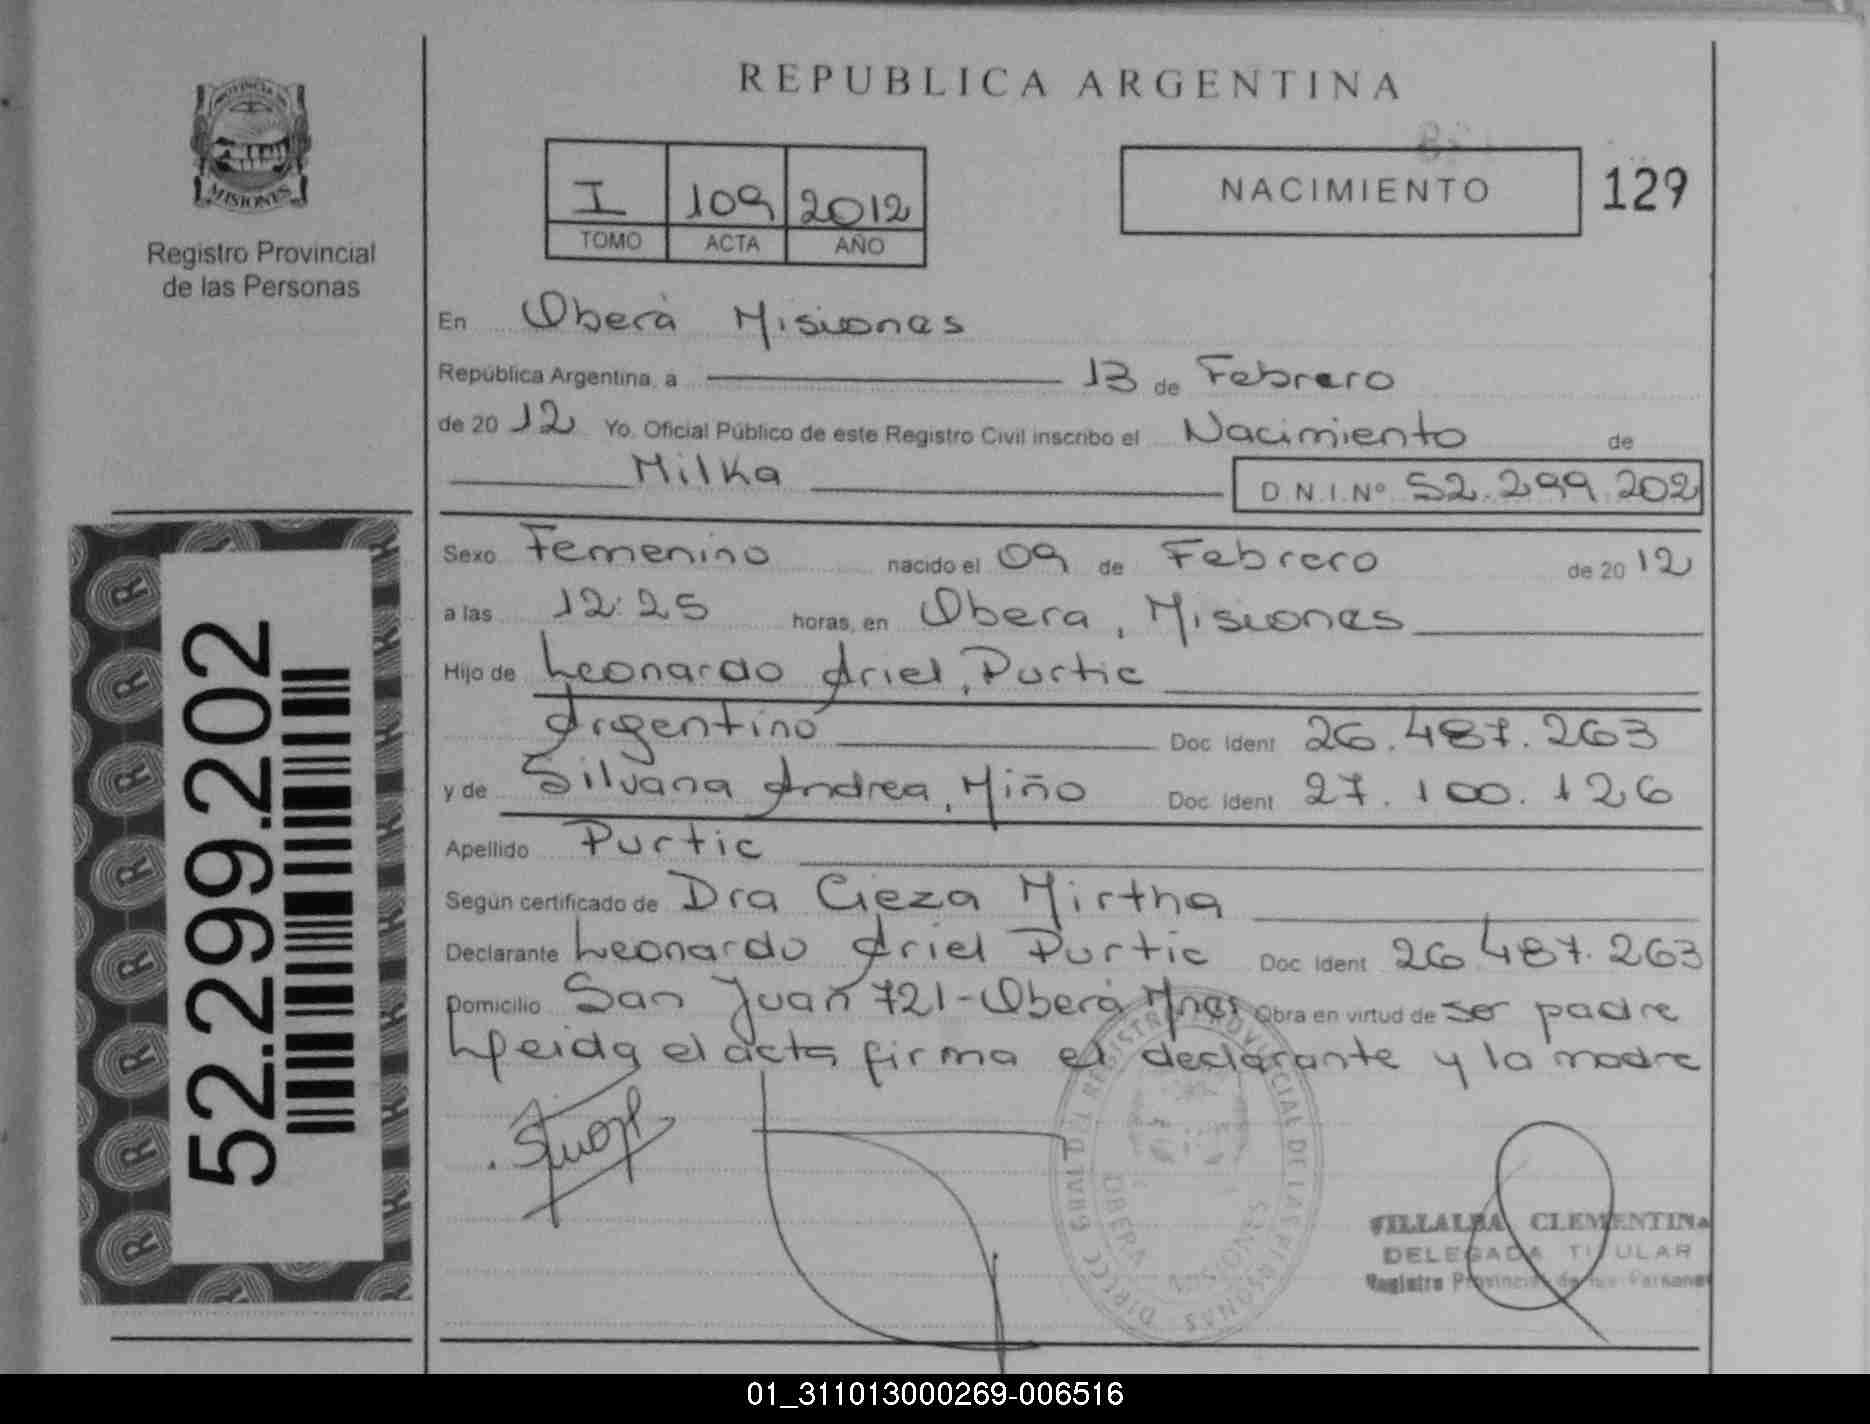 REPUBLICA ARGENTINA
PROVINCIA DE
MISIONES
Registro Provincial
de las Personas
I 109 2012
TOMO ACTA AÑO
NACIMIENTO 129
En Oberá Misiones
República Argentina, a 13 de Febrero
de 2012 Yo, Oficial Público de este Registro Civil inscribo el Nacimiento de
Milka D.N.I.Nº 52.299.202
Sexo Femenino nacido el 09 de Febrero de 2012
a las 12:25 horas, en Obera, Misiones
Hijo de Leonardo Ariel, Purtic
Argentino Doc Ident 26.487.263
y de Silvana Andrea, Miño Doc Ident 27.100.126
Apellido Purtic
Según certificado de Dra Cieza Mirtha
Declarante Leonardo Ariel Purtic Doc Ident 26.487.263
Domicilio San Juan 721-Oberá Mnes Obra en virtud de ser padre
Leida el acta firma el declarante y la madre
52.299.202
DIRECC GRAL DEL REGISTRO PROVINCIAL DE LAS PERSONAS
OBERA MISIONES
VILLALBA CLEMENTINA
DELEGADA TITULAR
Registro Provincial de las Personas
01_311013000269-006516